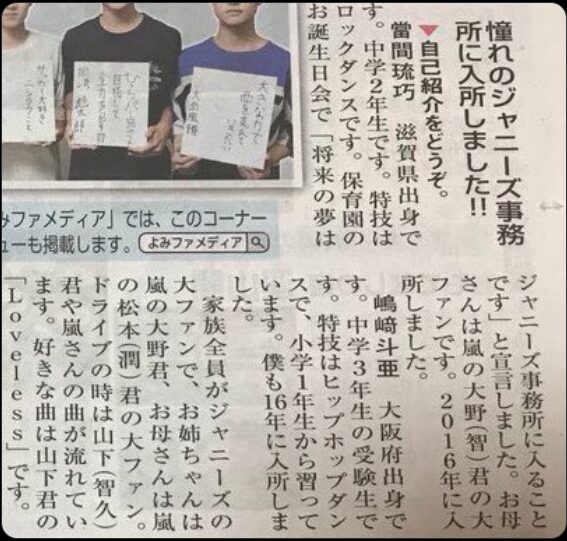 憧れのジャニーズ事務
所に入所しました!!
▼自己紹介をどうぞ。
當間琉巧　滋賀県出身で
す。中学2年生です。特技は
ロックダンスです。保育園の
お誕生日会で「将来の夢は
ジャニーズ事務所に入ること
です」と宣言しました。お母
さんは嵐の大野(智)君の大
ファンです。2016年に入
所しました。
嶋﨑斗亜　大阪府出身で
す。中学3年生の受験生で
す。特技はヒップホップダン
スで、小学1年生から習って
います。僕も16年に入所しま
した。
家族全員がジャニーズの
大ファンで、お姉ちゃんは
嵐の大野君、お母さんは嵐
の松本(潤)君の大ファン。
ドライブの時は山下(智久)
君や嵐さんの曲が流れてい
ます。好きな曲は山下君の
「Loveless」です。
みファメディア」では、このコーナー
ューも掲載します。
よみファメディア
サッカー大好き